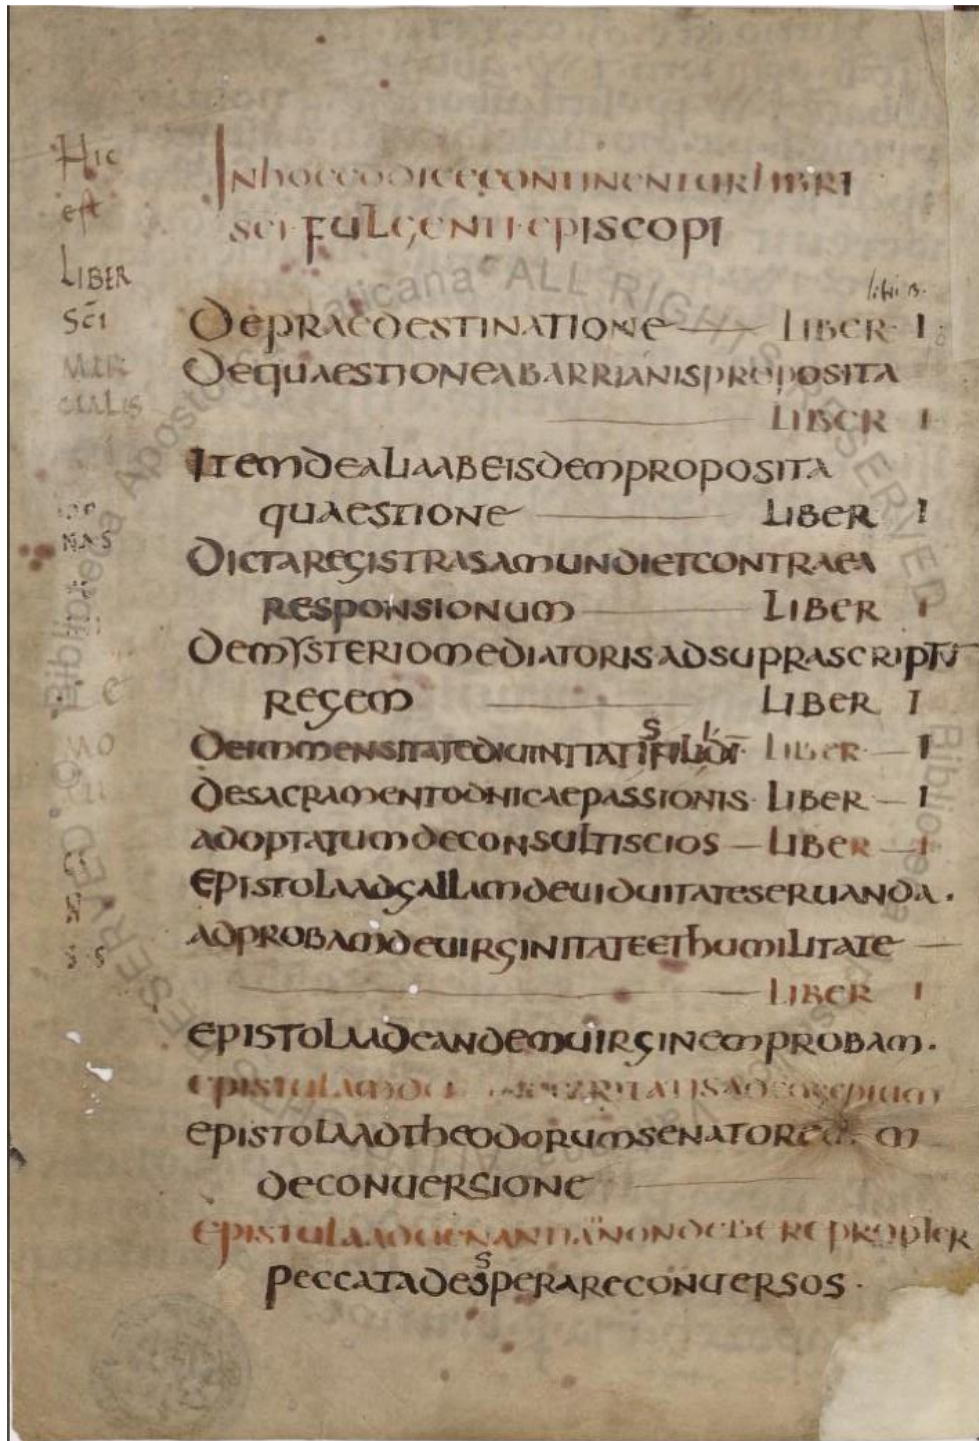 Hic
est
LIBER
Sc̄i
MAR
CIALIS
INhOCCODICECONTINENTURLIBRI
SCI·FULGENTI·EPISCOPI
libri
DEPRAEDESTINATIONE LIBER I
DEQUAESTIONEABARRIANISPROPOSITA
LIBER I
ITEMDEALIAABEISDEMPROPOSITA
QUAESTIONE LIBER I
DICTAREGISTRASAMUNDIETCONTRAEA
RESPONSIONUM LIBER I
DEMYSTERIOMEDIATORISADSUPRASCRIPTU
REGEM LIBER I
DEIMMENSITATEDIUINITATISFILIIDI· LIBER I
DESACRAMENTODNICAEPASSIONIS· LIBER I
ADOPTATUMDECONSULTISCIOS LIBER I
EPISTOLAADGALLAMDEUIDUITATESERUANDA·
ADPROBAMDEUIRGINITATEEThUMILITATE
LIBER I
EPISTOLAADEANDEMUIRGINEMPROBAM·
EPISTOLAADTHEODORUMSENATOREM
DECONUERSIONE
EPISTULAADUENANTIANONDEBEREPROPTER
PECCATADESPERARECONUERSOS·